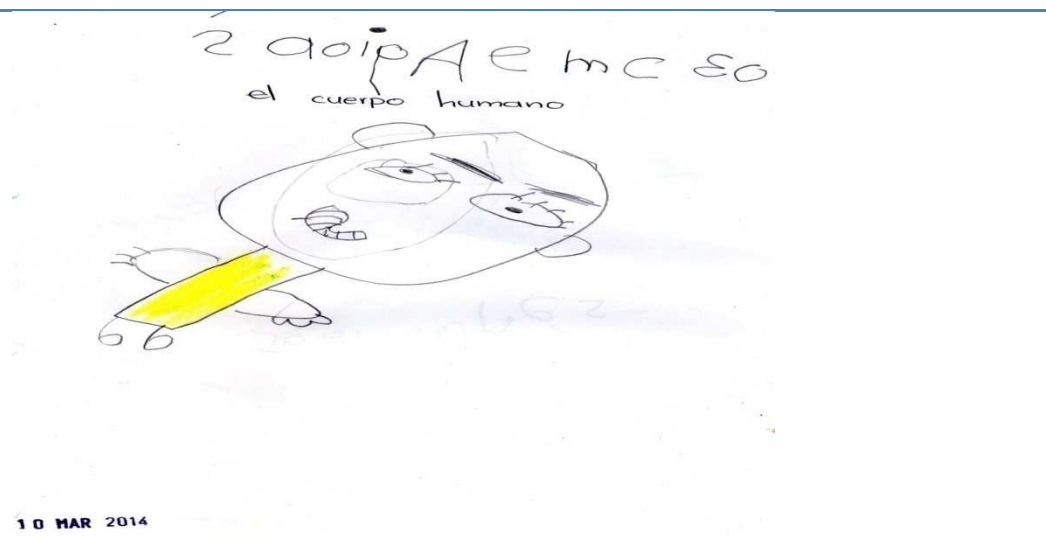 2 aoipAemcEo
el cuerpo humano
10 MAR 2014